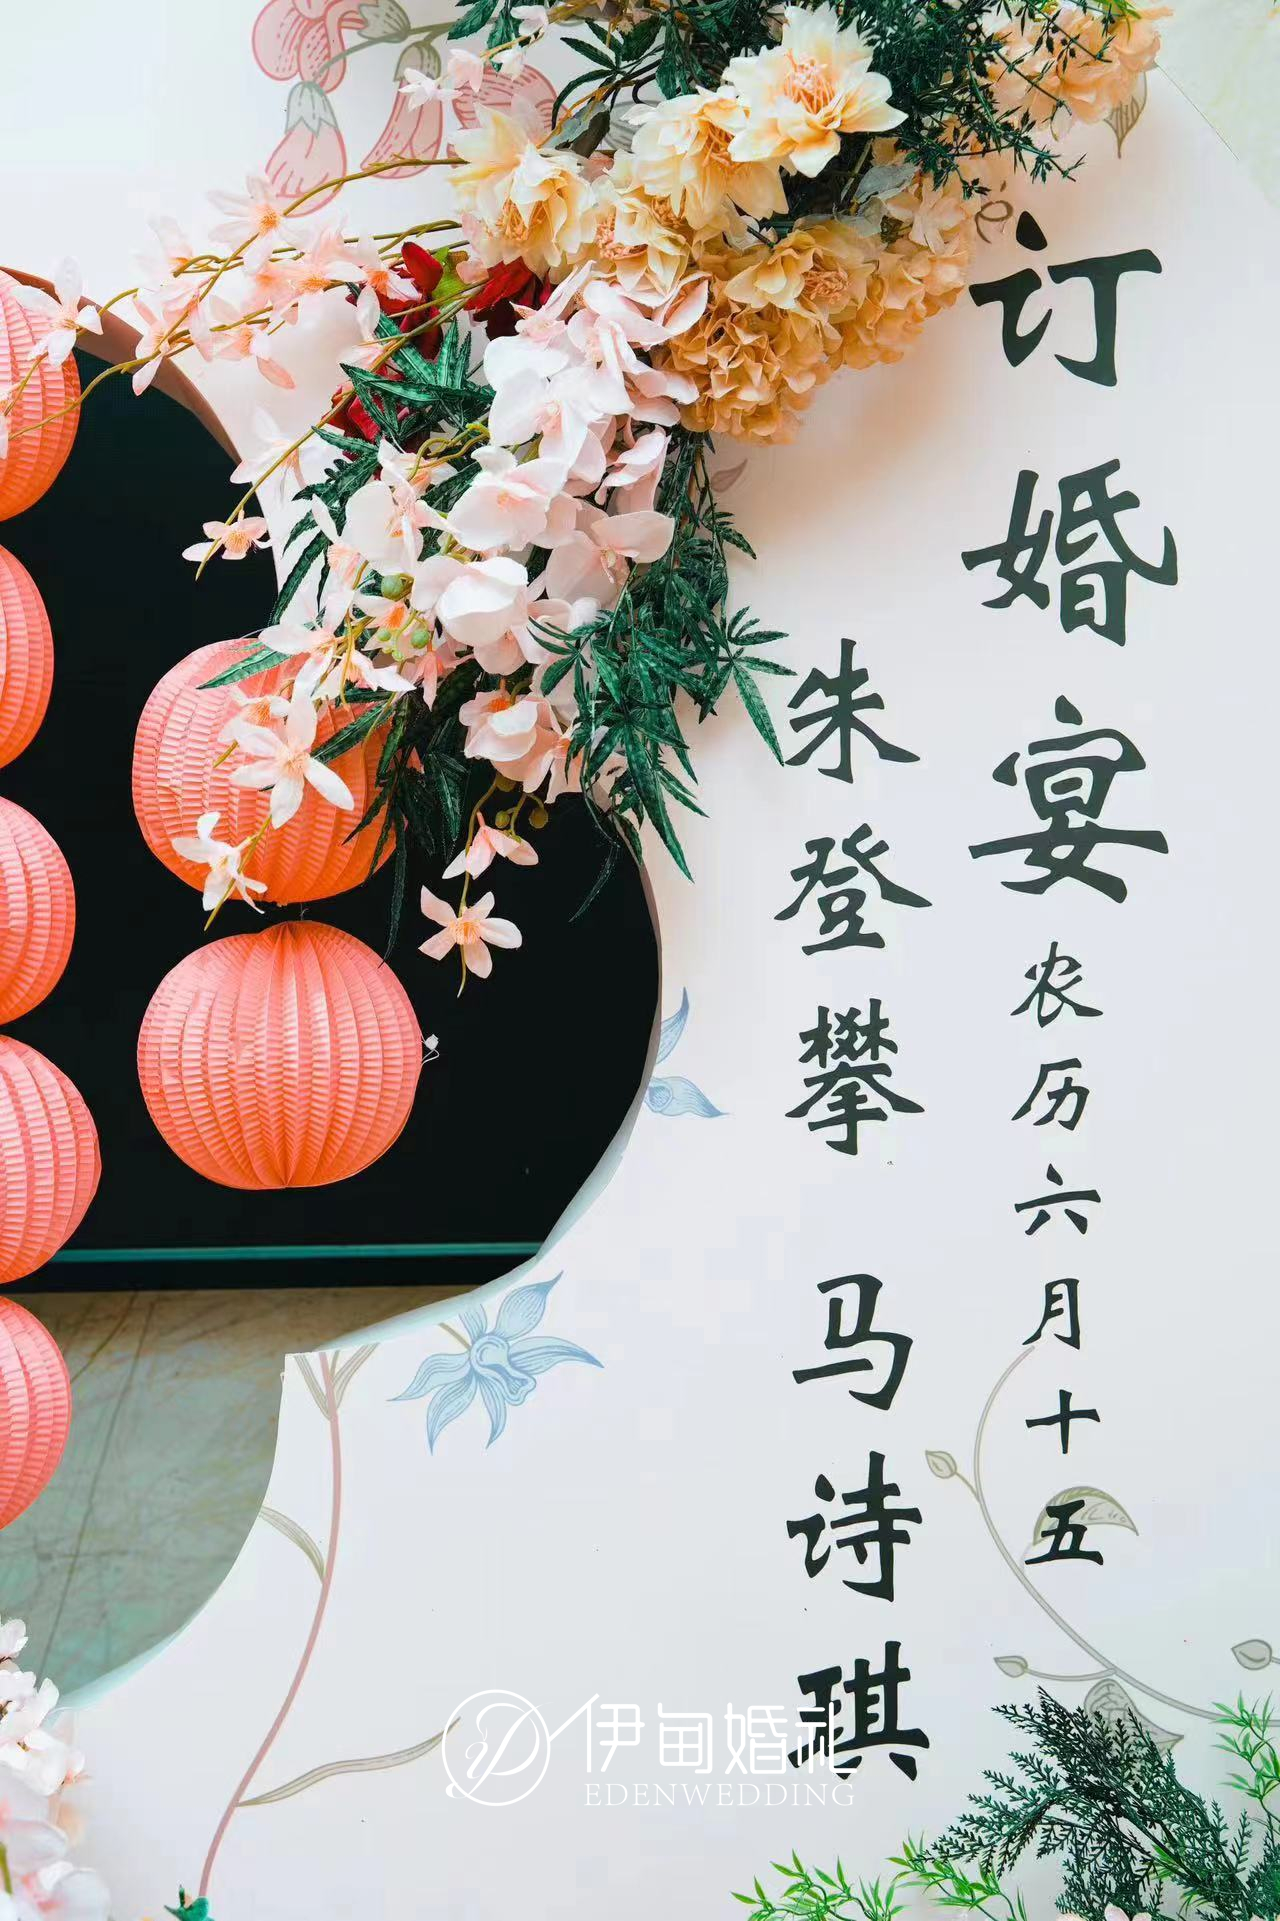 订婚宴 农历六月十五
朱登攀 马诗琪
伊甸婚礼
EDENWEDDING